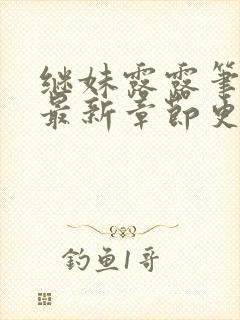 继妹露露筆
最新章節史
钓鱼1哥